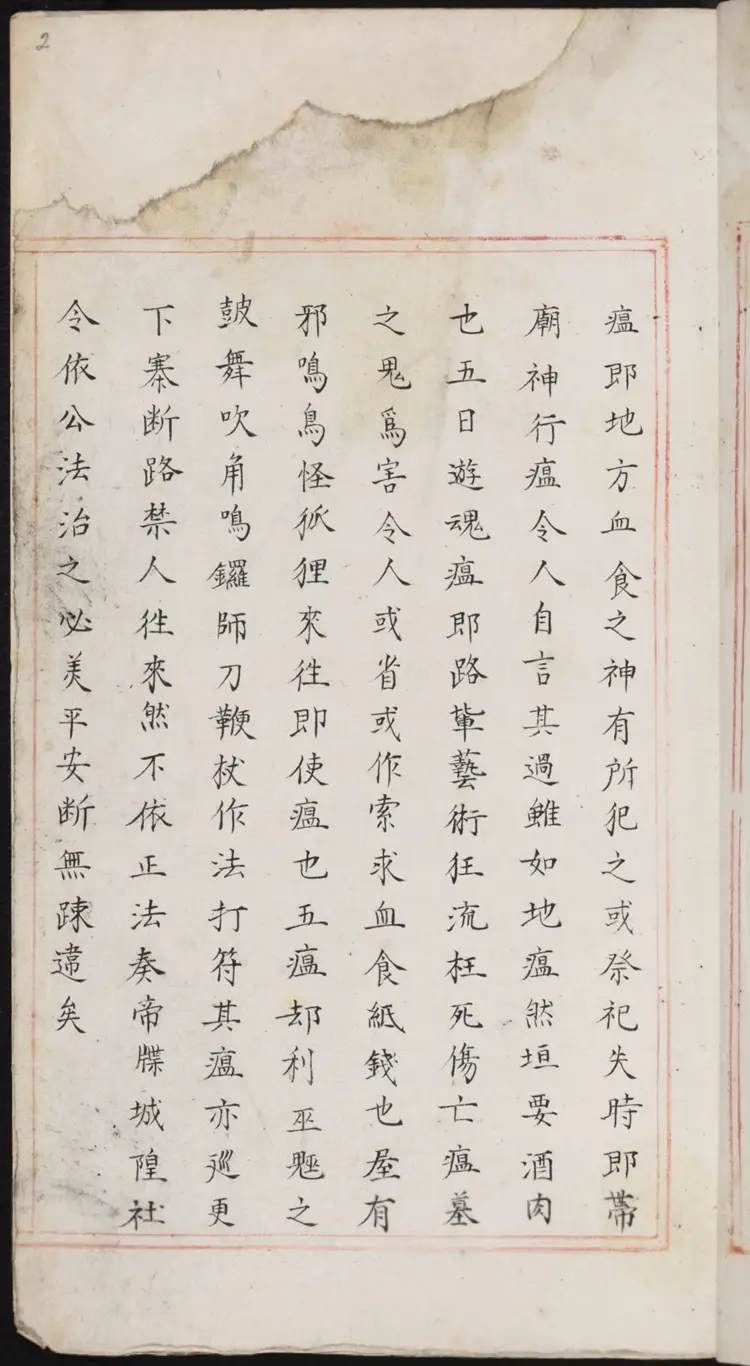 2
瘟即地方血食之神有所犯之或祭祀失時即帶
廟神行瘟令人自言其過雖如地瘟然垣要酒肉
也五日遊魂瘟即路軰藝術狂流枉死傷亡瘟墓
之鬼爲害令人或省或作索求血食紙錢也屋有
邪鳴鳥怪狐狸來徃即使瘟也五瘟却利巫覡之
皷舞吹角鳴鑼師刀鞭杖作法打符其瘟亦巡更
下寨断路禁人徃來然不依正法奏帝牒城隍社
令依公法治之必美平安断無踈違矣